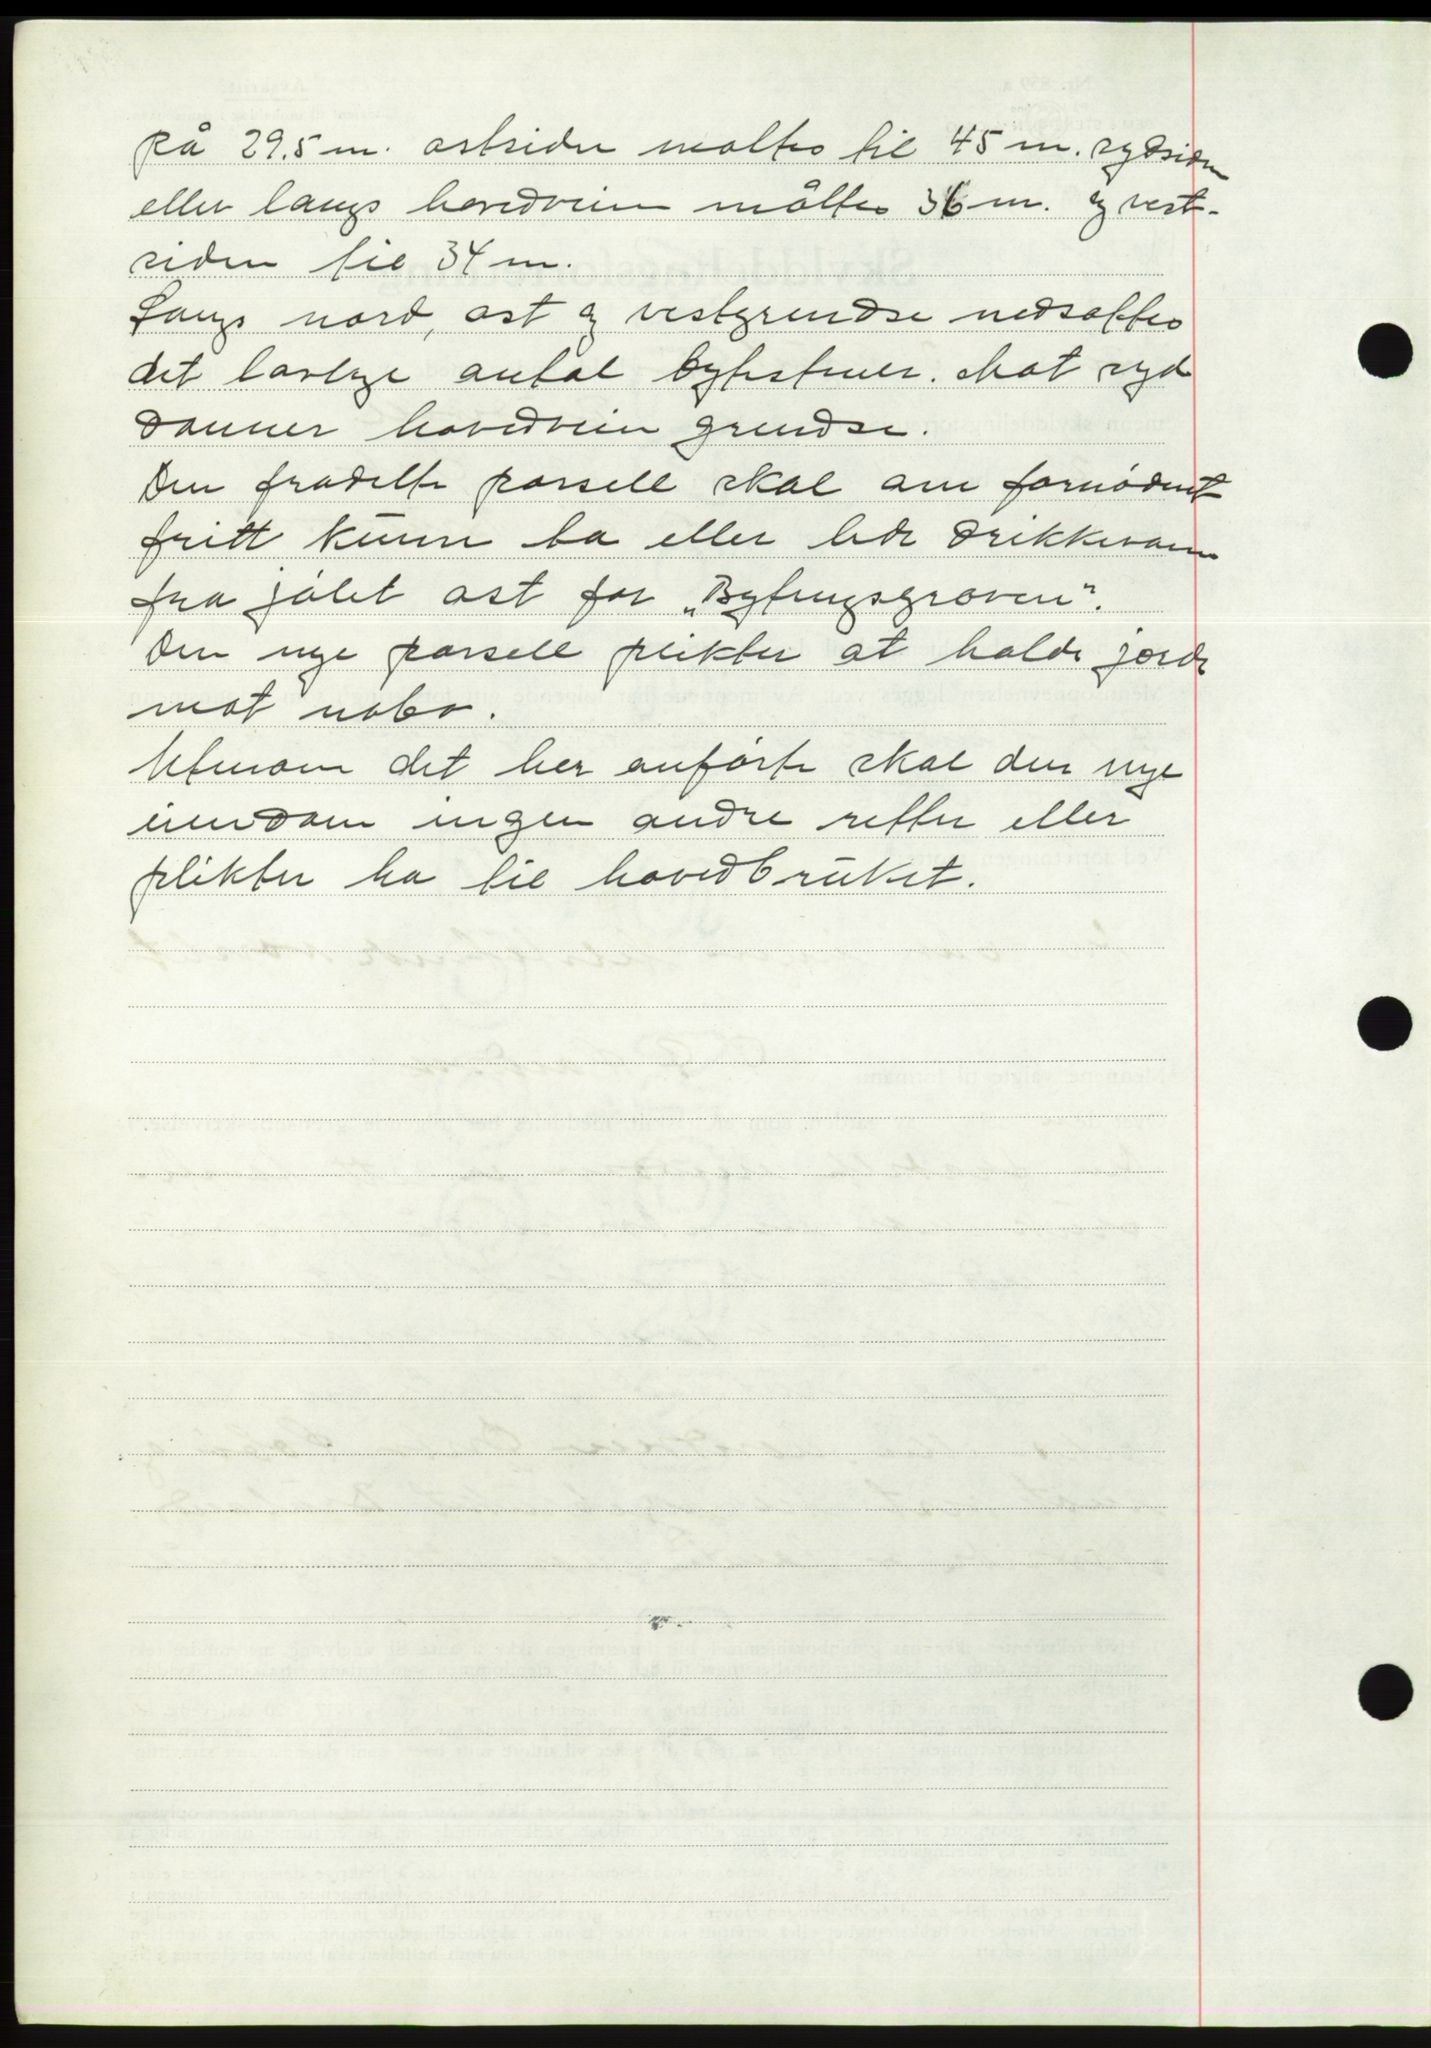 på 29.5 m. ostsiden maltes til 45 m. sydsiden
eller langs hovedveien måltes 36 m. og vest-
siden til 34 m.
Langs nord, ost og vestgrendse nedsattes
det lovlige antal bytestener. Mot syd
danner hovedveien grendse.
Den fradelte parsell skal om fornødent
fritt kunne ta eller lede drikkevann
fra jølet ost for „Bytingsgroven".
Den nye parsell plikter at holde jorde
mot nabo.
Utenom det her anførte skal den nye
eiendom ingen andre retter eller
plikter ha til hovedbruket.